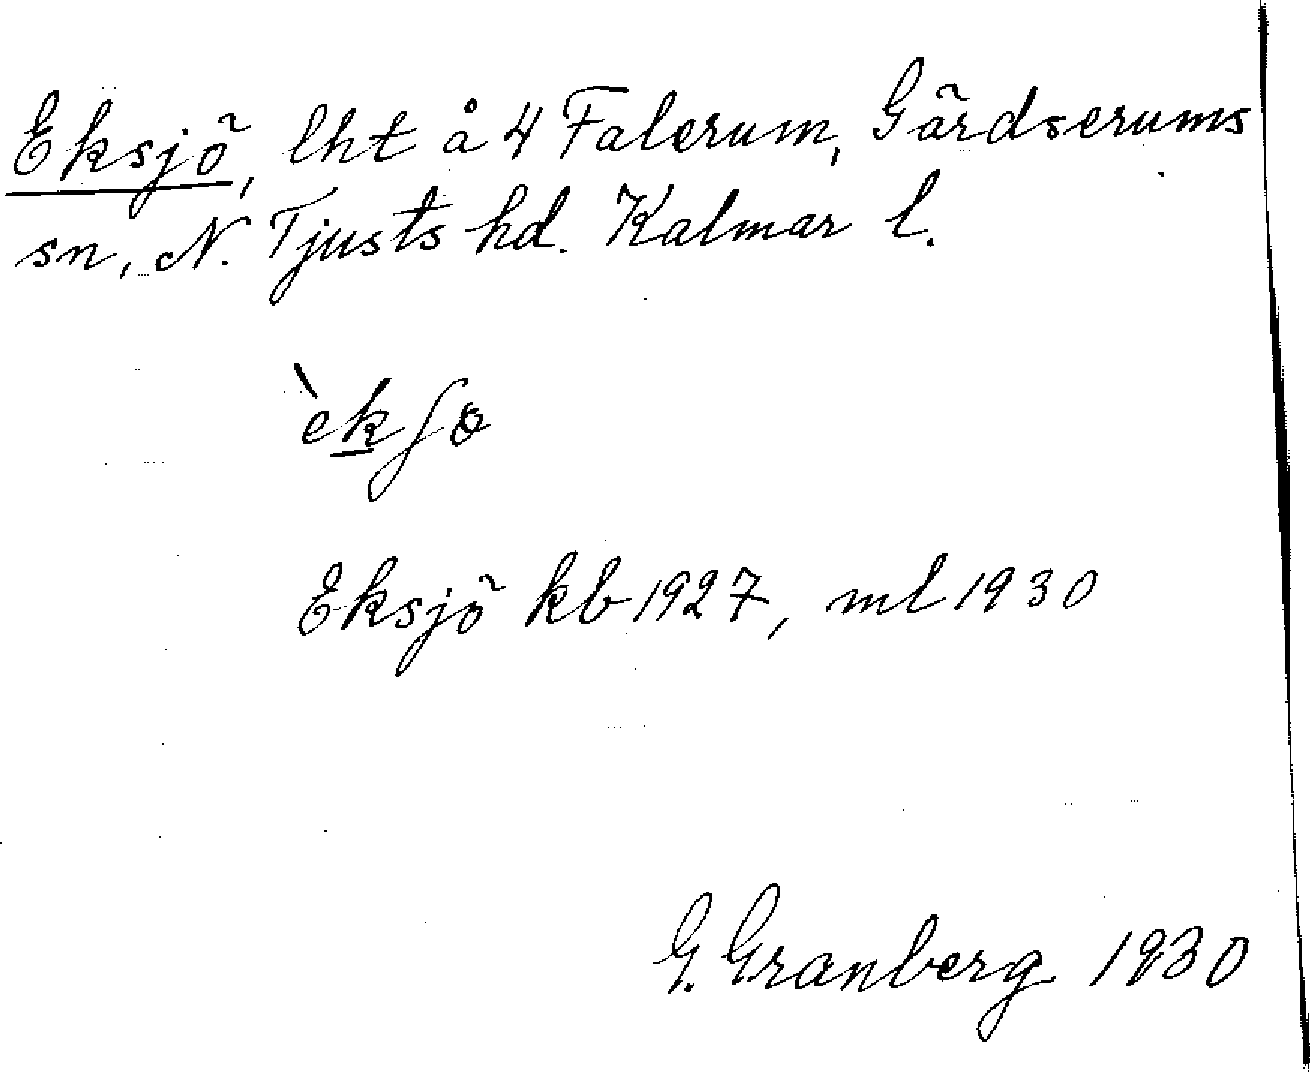 Eksjö, lht å 4 Falerum, Gärdserums
sn, N. Tjusts hd. Kalmar l.
̀ekʃø
Eksjö kb 1927, ml 1930
G. Granberg 1930